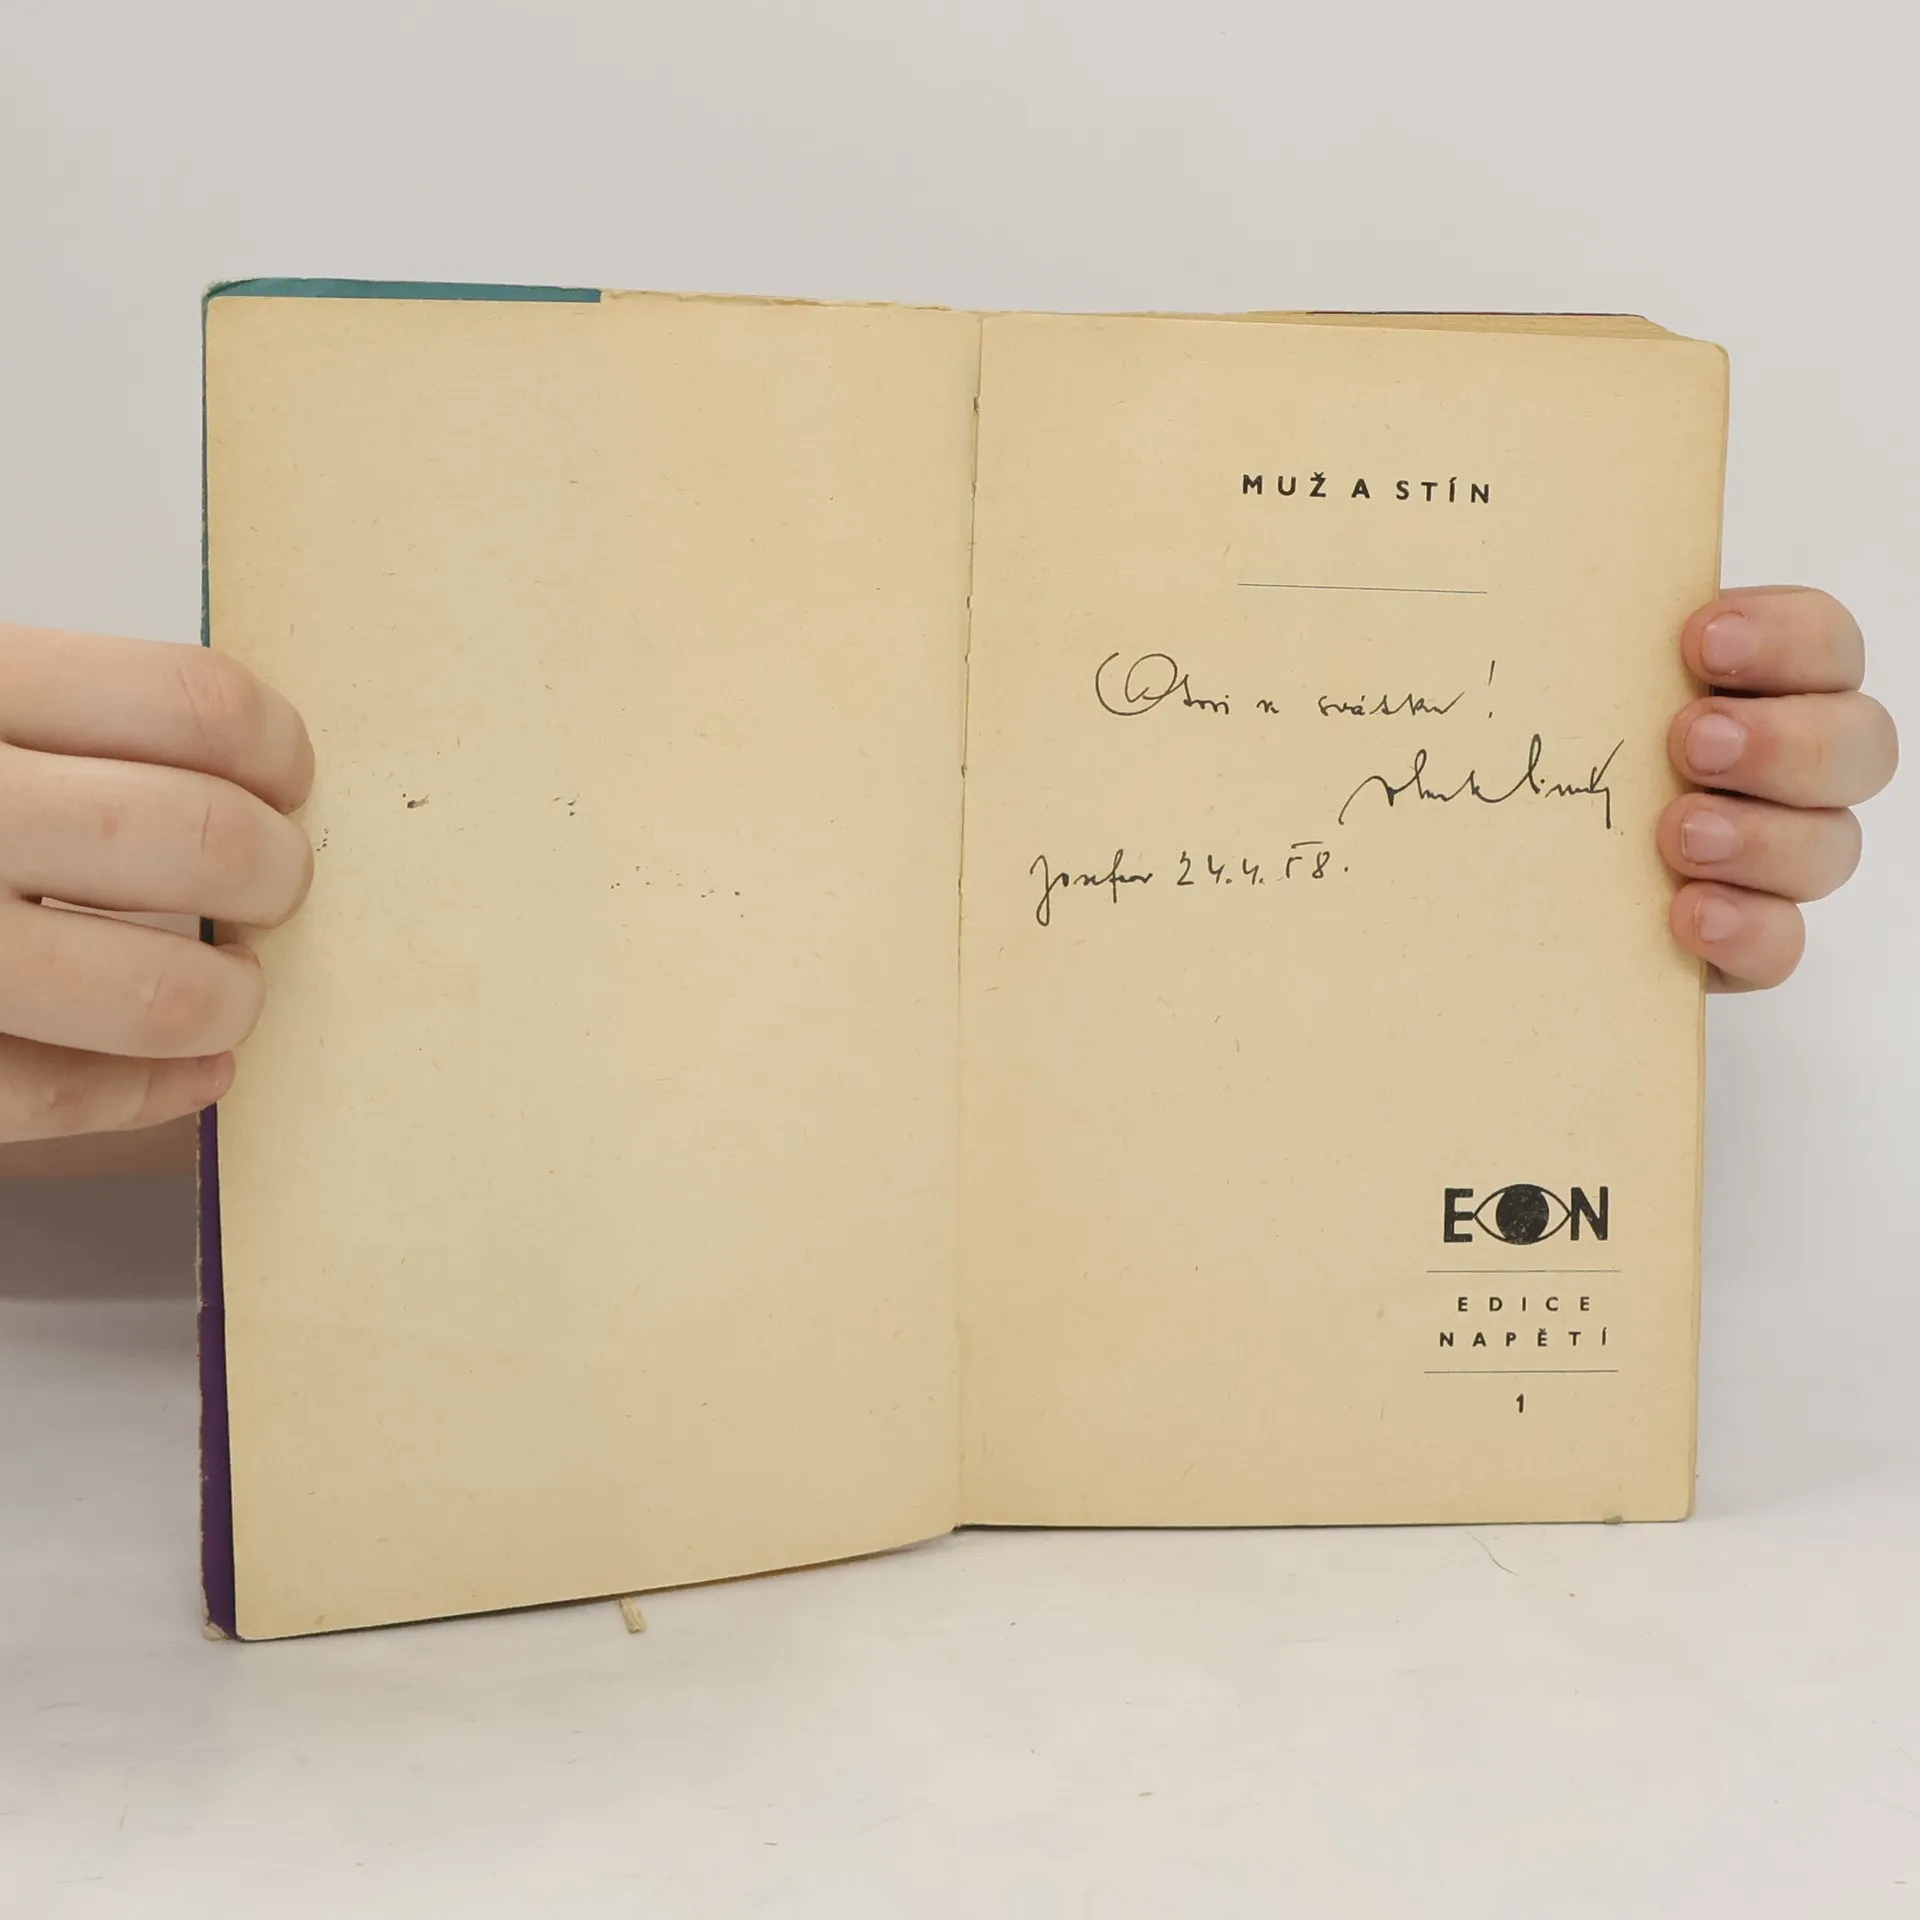 MUŽ A STÍN
Otovi k svátku!
Josefov 24.4.58.
EON
EDICE
NAPĚTÍ
1